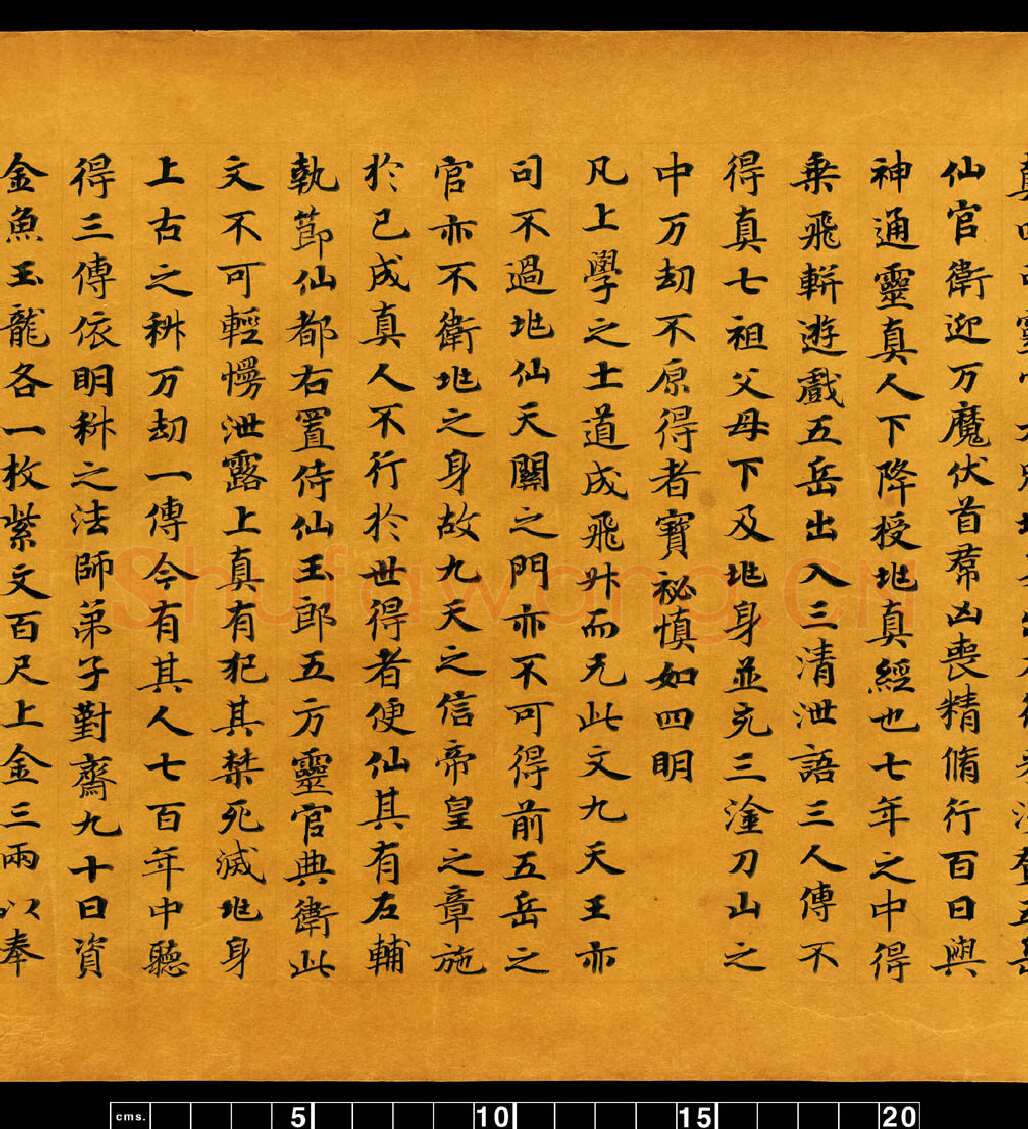 仙官衛迎万魔伏首羣凶喪精脩行百日與
神通靈真人下降授兆真經也七年之中得
乗飛軿遊戲五岳出入三清泄語三人傳不
得真七祖父母下及兆身並充三塗刀山之
中万劫不原得者寶祕慎如四明
凡上學之士道成飛升而无此文九天王亦
司不過兆仙天關之門亦不可得前五岳之
官亦不衛兆之身故九天之信帝皇之章施
於已成真人不行於世得者便仙其有左輔
執節仙都右置侍仙玉郎五方靈官典衛此
文不可輕慢泄露上真有犯其禁死滅兆身
上古之科万劫一傳今有其人七百年中聽
得三傳依明科之法師弟子對齋九十日資
金魚玉龍各一枚紫文百尺上金三兩以奉
Shufawang.CN
cms. 5 10 15 20